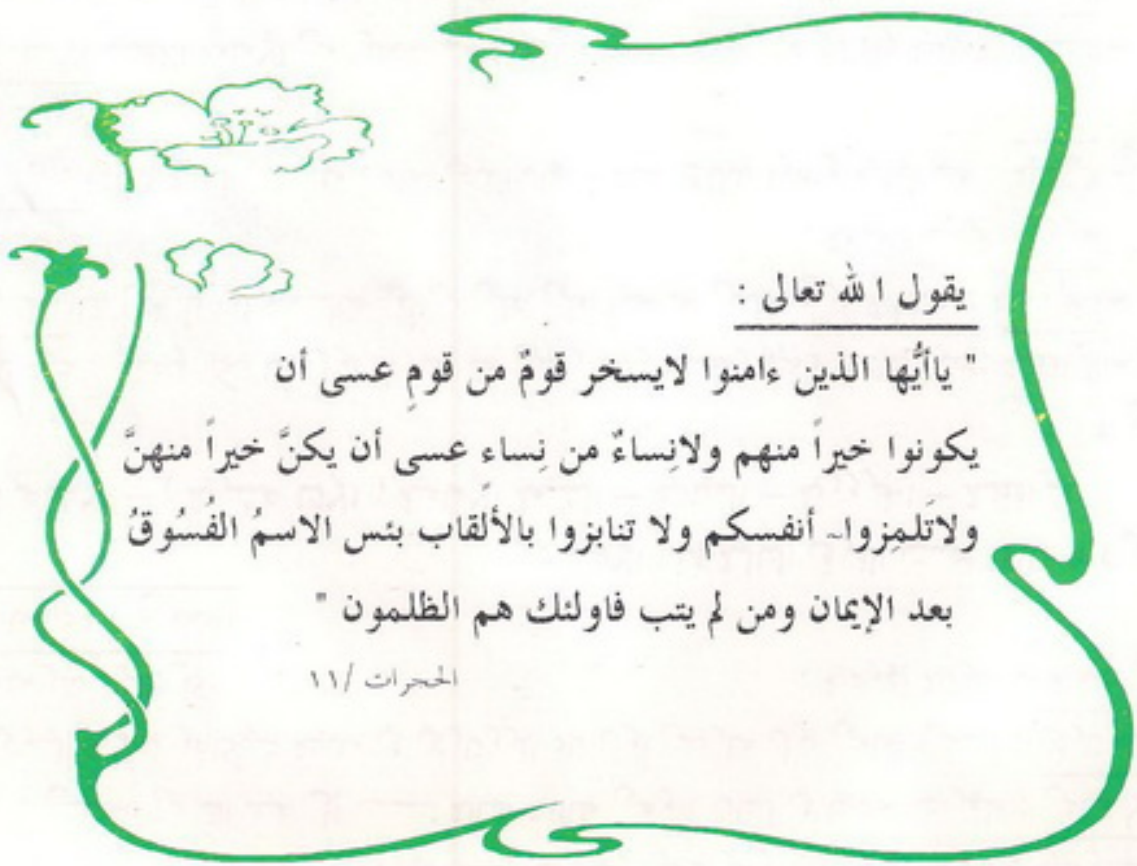 يقول ا لله تعالى :
" ياأيُّها الذين ءامنوا لايسخر قومٌ من قومٍ عسى أن
يكونوا خيراً منهم ولانِساءٌ من نِساءٍ عسى أن يكنَّ خيراً منهنَّ
ولاتَلمِزوا~ أنفسكم ولا تنابزوا بالألقاب بئس الاسمُ الفُسُوقُ
بعد الإيمان ومن لم يتب فاولئك هم الظلمون "
الحجرات /١١